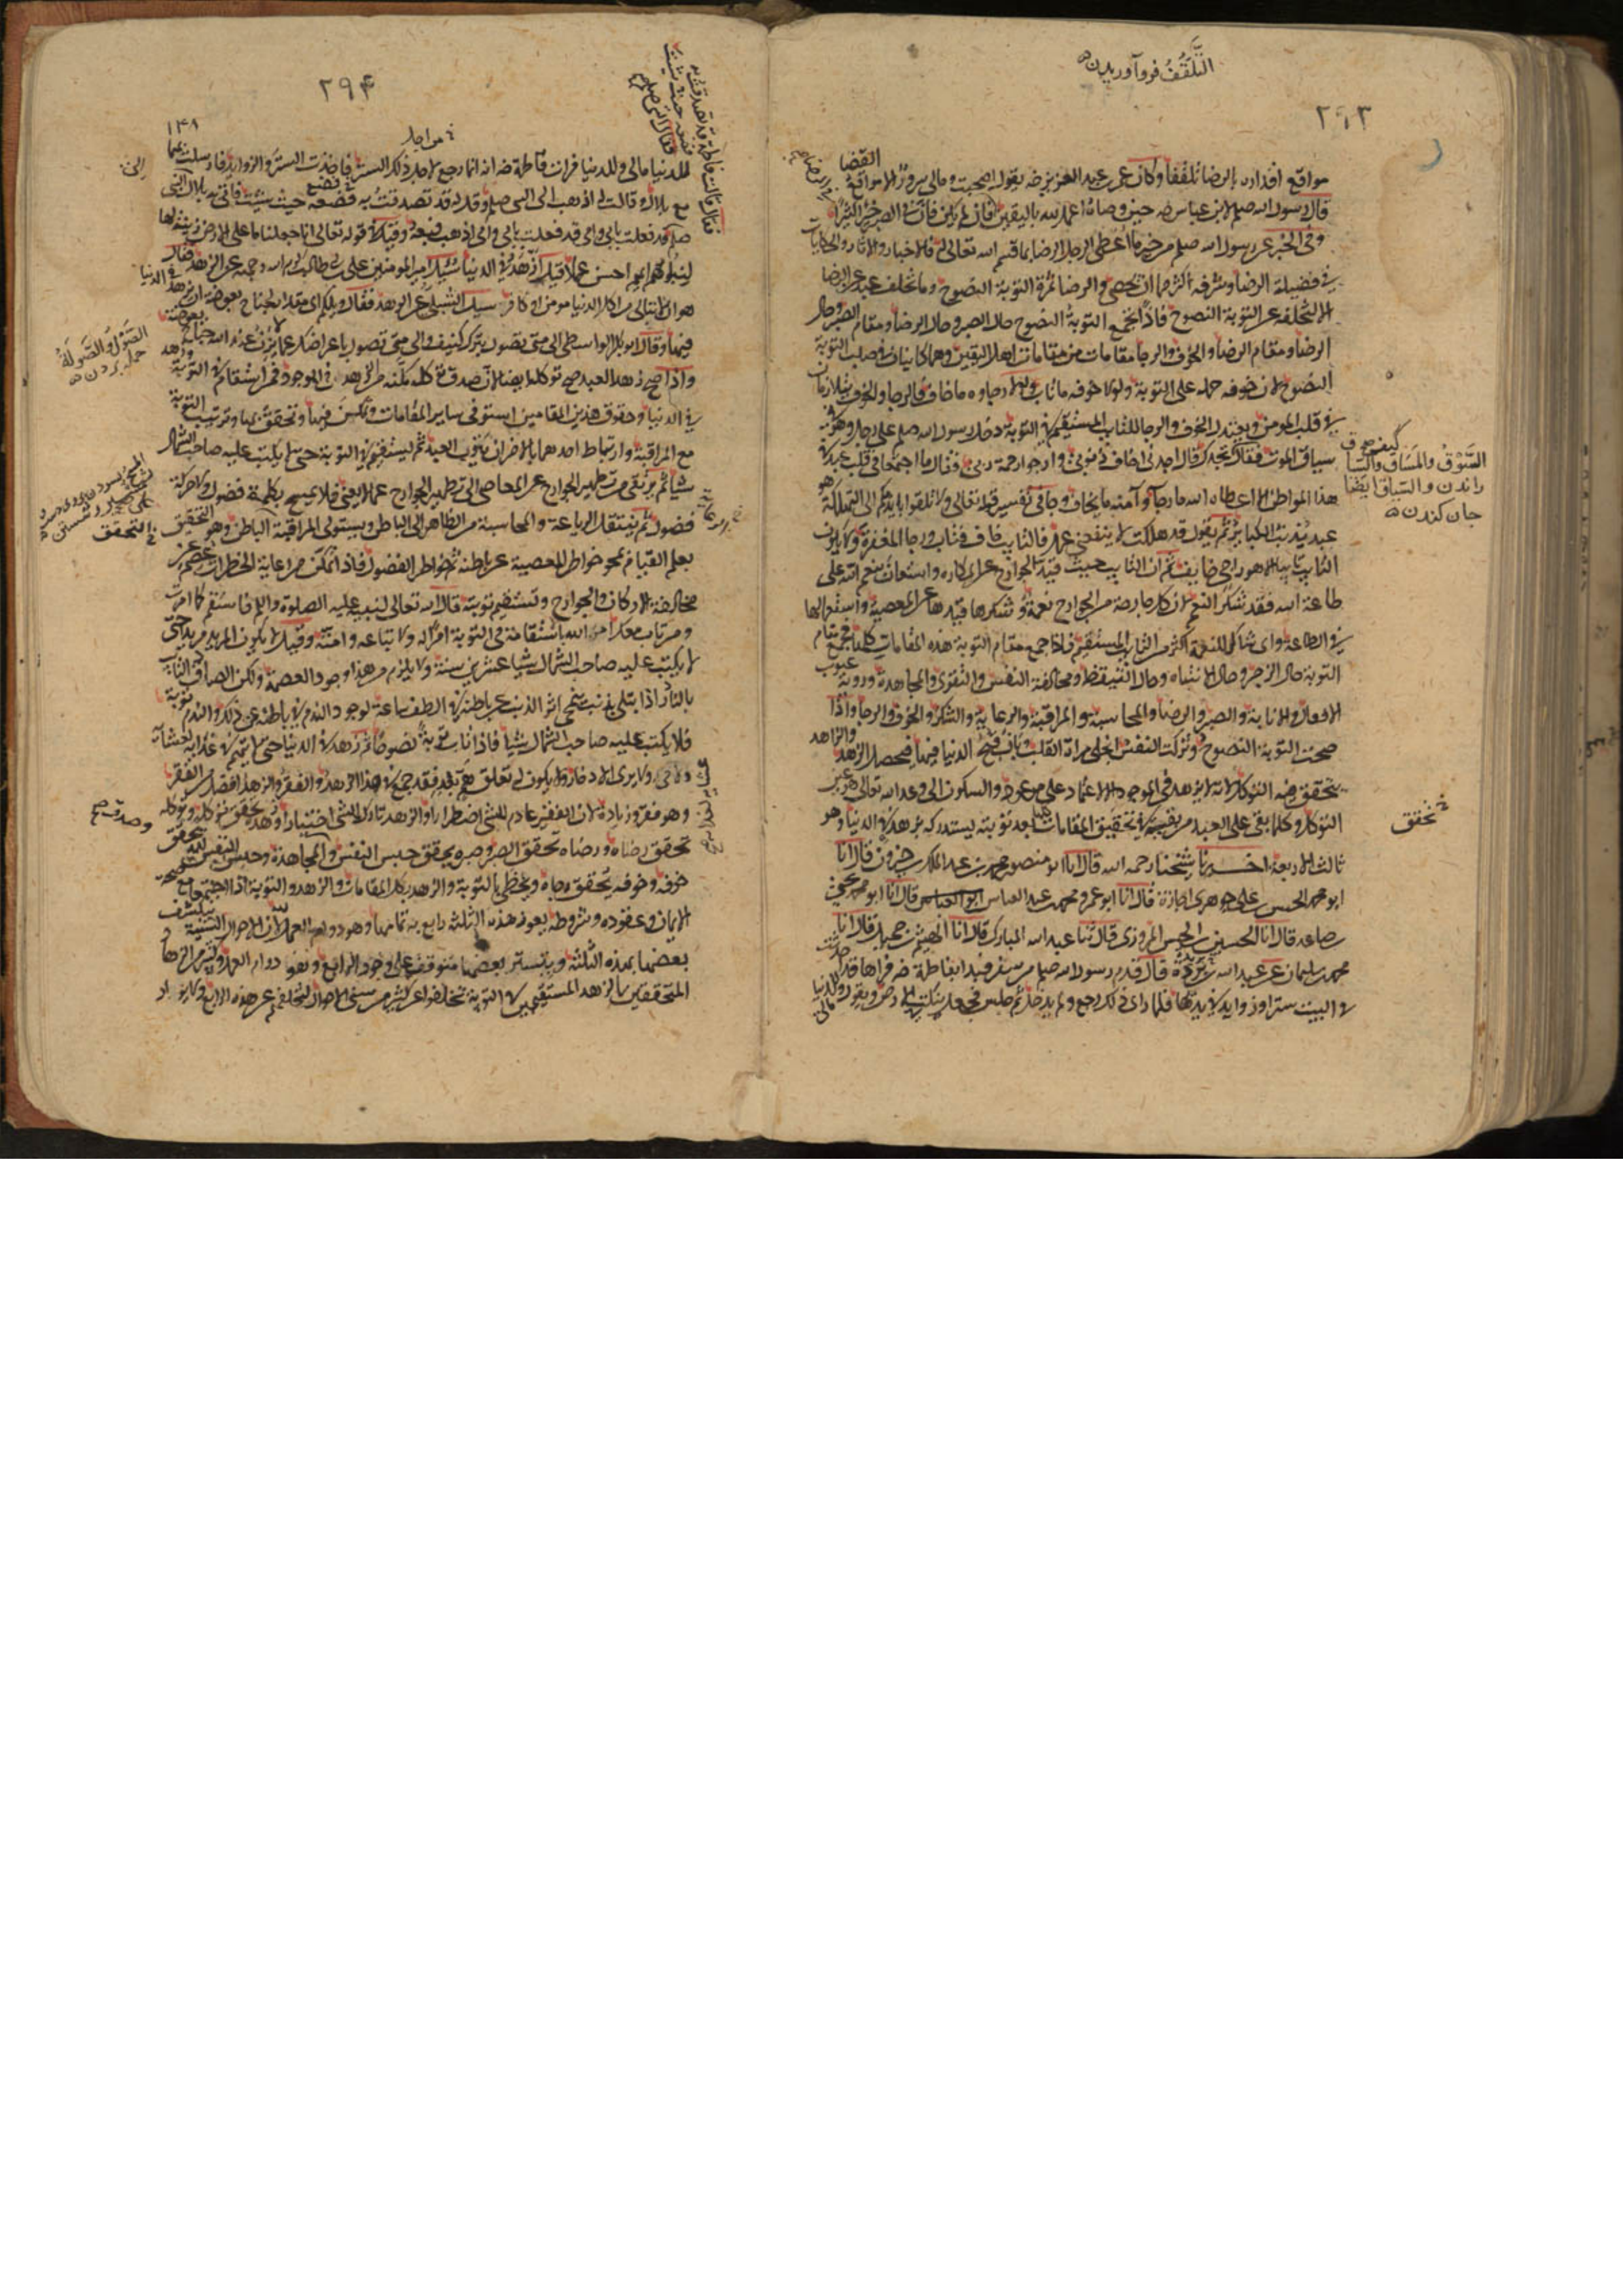 التَّلَقُّفُ فروآوريدن
٢٩٣
القضا
مواقع اقداره بالرضا تلقفا وكان عمر بن عبد العزيز رضه يقول اصبحت ومالي سرور الا مواقع
قال رسول الله صلعم لابن عباس رضه حين وصاه اعمل لله باليقين فان لم يكن فان في الصبر خيرا كثيرا
وفي الخبر عن رسول الله صلعم من خير ما اعطي الرجل الرضا بما قسم الله تعالى له فالاخبار والاثار والحكايات
في فضيلة الرضا وشرفه اكثر من ان تحصى والرضا ثمرة التوبة النصوح وما تخلف عبد عن الرضا
الا بتخلفه عن التوبة النصوح فاذا تجمع التوبة النصوح حال الصبر وحال الرضا ومقام الصبر وحال
الرضا ومقام الرضا والخوف والرجا مقامات من مقامات اهل اليقين وهما كاينان في صلب التوبة
النصوح لان خوفه حمله على التوبة ولولا خوفه ما تاب ولولا رجاوه ما خاف فالرجا والخوف يتلازمان
في قلب المومن ويعتدل الخوف والرجا للتايب المستقيم في التوبة دخل رسول الله صلعم على رجل وهو في
سياق الموت فقال كيف تجدك قال اجدني اخاف ذنوبي وارجو رحمة ربي فقال ما اجتمعا في قلب عبد في
هذا المواطن الا اعطاه الله ما رجا وآمنه ما يخاف وجا في تفسير قوله تعالى ولا تلقوا بايديكم الى التهلكة هو
عبد يذنب الكباير ثم يقول قد هلكت لا ينفعني عمل فالتايب خاف فتاب ورجا المغفرة ولا يكون
التايب تايبا الا وهو راج خايف ثم ان التايب حيث قيد الجوارح عن المكاره واستعان بنعم الله على
طاعة الله فقد شكر النعم لان كل جارحة من الجوارح نعمة وشكرها قيدها عن المعصية واستعمالها
في الطاعة واي شاكر للنعمة اكثر من التايب المستقيم فاذا جمع مقام التوبة هذه المقامات كلها فجمع مقام
التوبة حال الزجر وحال الانتباه وحال التيقظ ومخالفة النفس والتقوى والمجاهدة وروية عيوب
الافعال والانابة والصبر والرضا والمحاسبة والمراقبة والرعاية والشكر والخوف والرجا واذا
صحت التوبة النصوح وتزكت النفس انجلى مراة القلب وبان قبح الدنيا فيها فيحصل الزهد والزاهد
يتحقق فيه التوكل لانه لا يزهد في الموجود الا لاعتماده على موعود والسكون الى وعد الله تعالى هو عين
التوكل وكلما بقي على العبد من بقية في تحقيق المقامات كلها بعد توبته يستدركه بزهده في الدنيا وهو
ثالث الاربعة اخبرنا شيخنا رحمه الله قال انا ابو منصور محمد بن عبد الملك بن خيرون قال انا
ابو محمد الحسن بن علي جوهري اجازة قال انا ابو عمرو محمد بن عبد العباس قال انا ابو محمد يحيى
بن صاعد قال انا الحسين بن الحسن المروزي قال ثنا عبد الله المبارك قال انا الهيثم بن جميل قال انا
محمد بن سليمان عن عبد الله بن بريدة قال قدم رسول الله صلعم من سفر فبدا بفاطمة رضه فراها قد احدثت
في البيت سترا وزوايد في يديها فلما راى ذلك رجع ولم يدخل ثم جلس فجعل ينكت في الارض ويقول مالي وللدنيا
السَّوْقُ والمَسَاق والسِّيَاق
راندن والسياق ايضا
جان كندن
تحقق
٢٩۴
١۴٨
من اجل
للدنيا مالي وللدنيا فرات فاطمة رضه انه انما رجع لاجل ذلك الستر فاخذت الستر والزوايد فارسلت بهما
مع بلال وقالت له اذهب الى النبي صلعم وقل له قد تصدقت به فضعه حيث شيت فاتى به بلال النبي
صلعم قد فعلت بابي وامي قد فعلت بابي وامي اذهب فبعه وقيل في قوله تعالى انا جعلنا ما على الارض زينة لها
لنبلوهم ايهم احسن عملا قيل ازهد في الدنيا سيل امير المومنين علي بن ابي طالب كرم الله وجهه عن الزهد فقال
هو ان لا تبالي من اكل الدنيا مومن او كافر سيل الشبلي عن الزهد فقال ويلكم اي مقدار لجناح بعوضة ان يزهد
فيها وقال ابو بكر الواسطي الى متى تصول بترك كنيف والى متى تصول باعراضك عما لا يزن عند الله جناح بعوضة
واذا صح زهد العبد صح توكله ايضا لان صدق توكله مكنه من الزهد في الموجود فمن استقام في التوبة
في الدنيا وحقوق هذين المقامين استوفى ساير المقامات وتكون فيها وتحقق بها وترتيب التوبة
مع المراقبة وارتباط احدهما بالاخر ان يتوب العبد ثم يستقيم في التوبة حتى لا يكتب عليه صاحب الشمال
شيا ثم يرتقي من تطهير الجوارح عن المعاصي الى تطهير الجوارح عما لا يعني فلا يسمح بكلمة فضول ولا حركة
فضول ثم ينتقل الرعاية والمحاسبة من الظاهر الى الباطن ويستولي المراقبة الباطن وهو التحقق
بعلم القيام بمحو خواطر المعصية عن باطنه ثم خواطر الفضول فاذا تمكن من رعاية الخطرات عصم عن
مخالفة الاركان والجوارح وتستقيم توبته قال الله تعالى لنبيه عليه الصلوة والسلام فاستقم كما امرت
ومن تاب معك امره الله باستقامة في التوبة امرا له ولاتباعه وامته وقيل لا يكون المريد مريدا حتى
لا يكتب عليه صاحب الشمال شيا عشرين سنة ولا يلزم من هذا وجود العصمة ولكن الصادق التايب
بالنادر اذا ابتلي بذنب ينمحي اثر الذنب عن باطنه في الطف ساعة لوجود الندم في باطنه عن ذلك والندم توبة
فلا يكتب عليه صاحب الشمال شيا فاذا تاب توبة نصوحا ثم زهد في الدنيا حتى لا يهتم في غدايه لعشايه
ولا يرى الادخار ولا يكون له تعلق هم بغد فقد جمع في هذا الزهد والفقر والزهد افضل من الفقر
وهو فقر وزيادة لان الفقير عادم للشي اضطرارا والزهد تارك للشي اختيارا وزهده يحقق توكله وتوكله
تحقق رضاه ورضاه تحقق الصبر وصبره يحقق حبس النفس والمجاهدة وحبس النفس لله يحقق
خوفه وخوفه يتحقق رجاه ويحظى بالتوبة والزهد بكل المقامات والزهد والتوبة اذا اجتمعا مع صحة
الايمان وعقوده وشروطه يعوز هذه الثلثة رابع به تمامها وهو دوام العمل لان الاحوال السنية ينكشف
بعضها بهذه الثلثة ويتيسر بعضها متوقف على وجود الرابع وهو دوام العمل وكثير من الزهاد
المتحققين بالزهد المستقيمين في التوبة تخلفوا عن كثير من سنى الاحوال لتخلفهم عن هذه الرابع ولا يراد
الصَّوْلُ والصَّوْلَةُ
حمله بردن
التحقق
وصدق